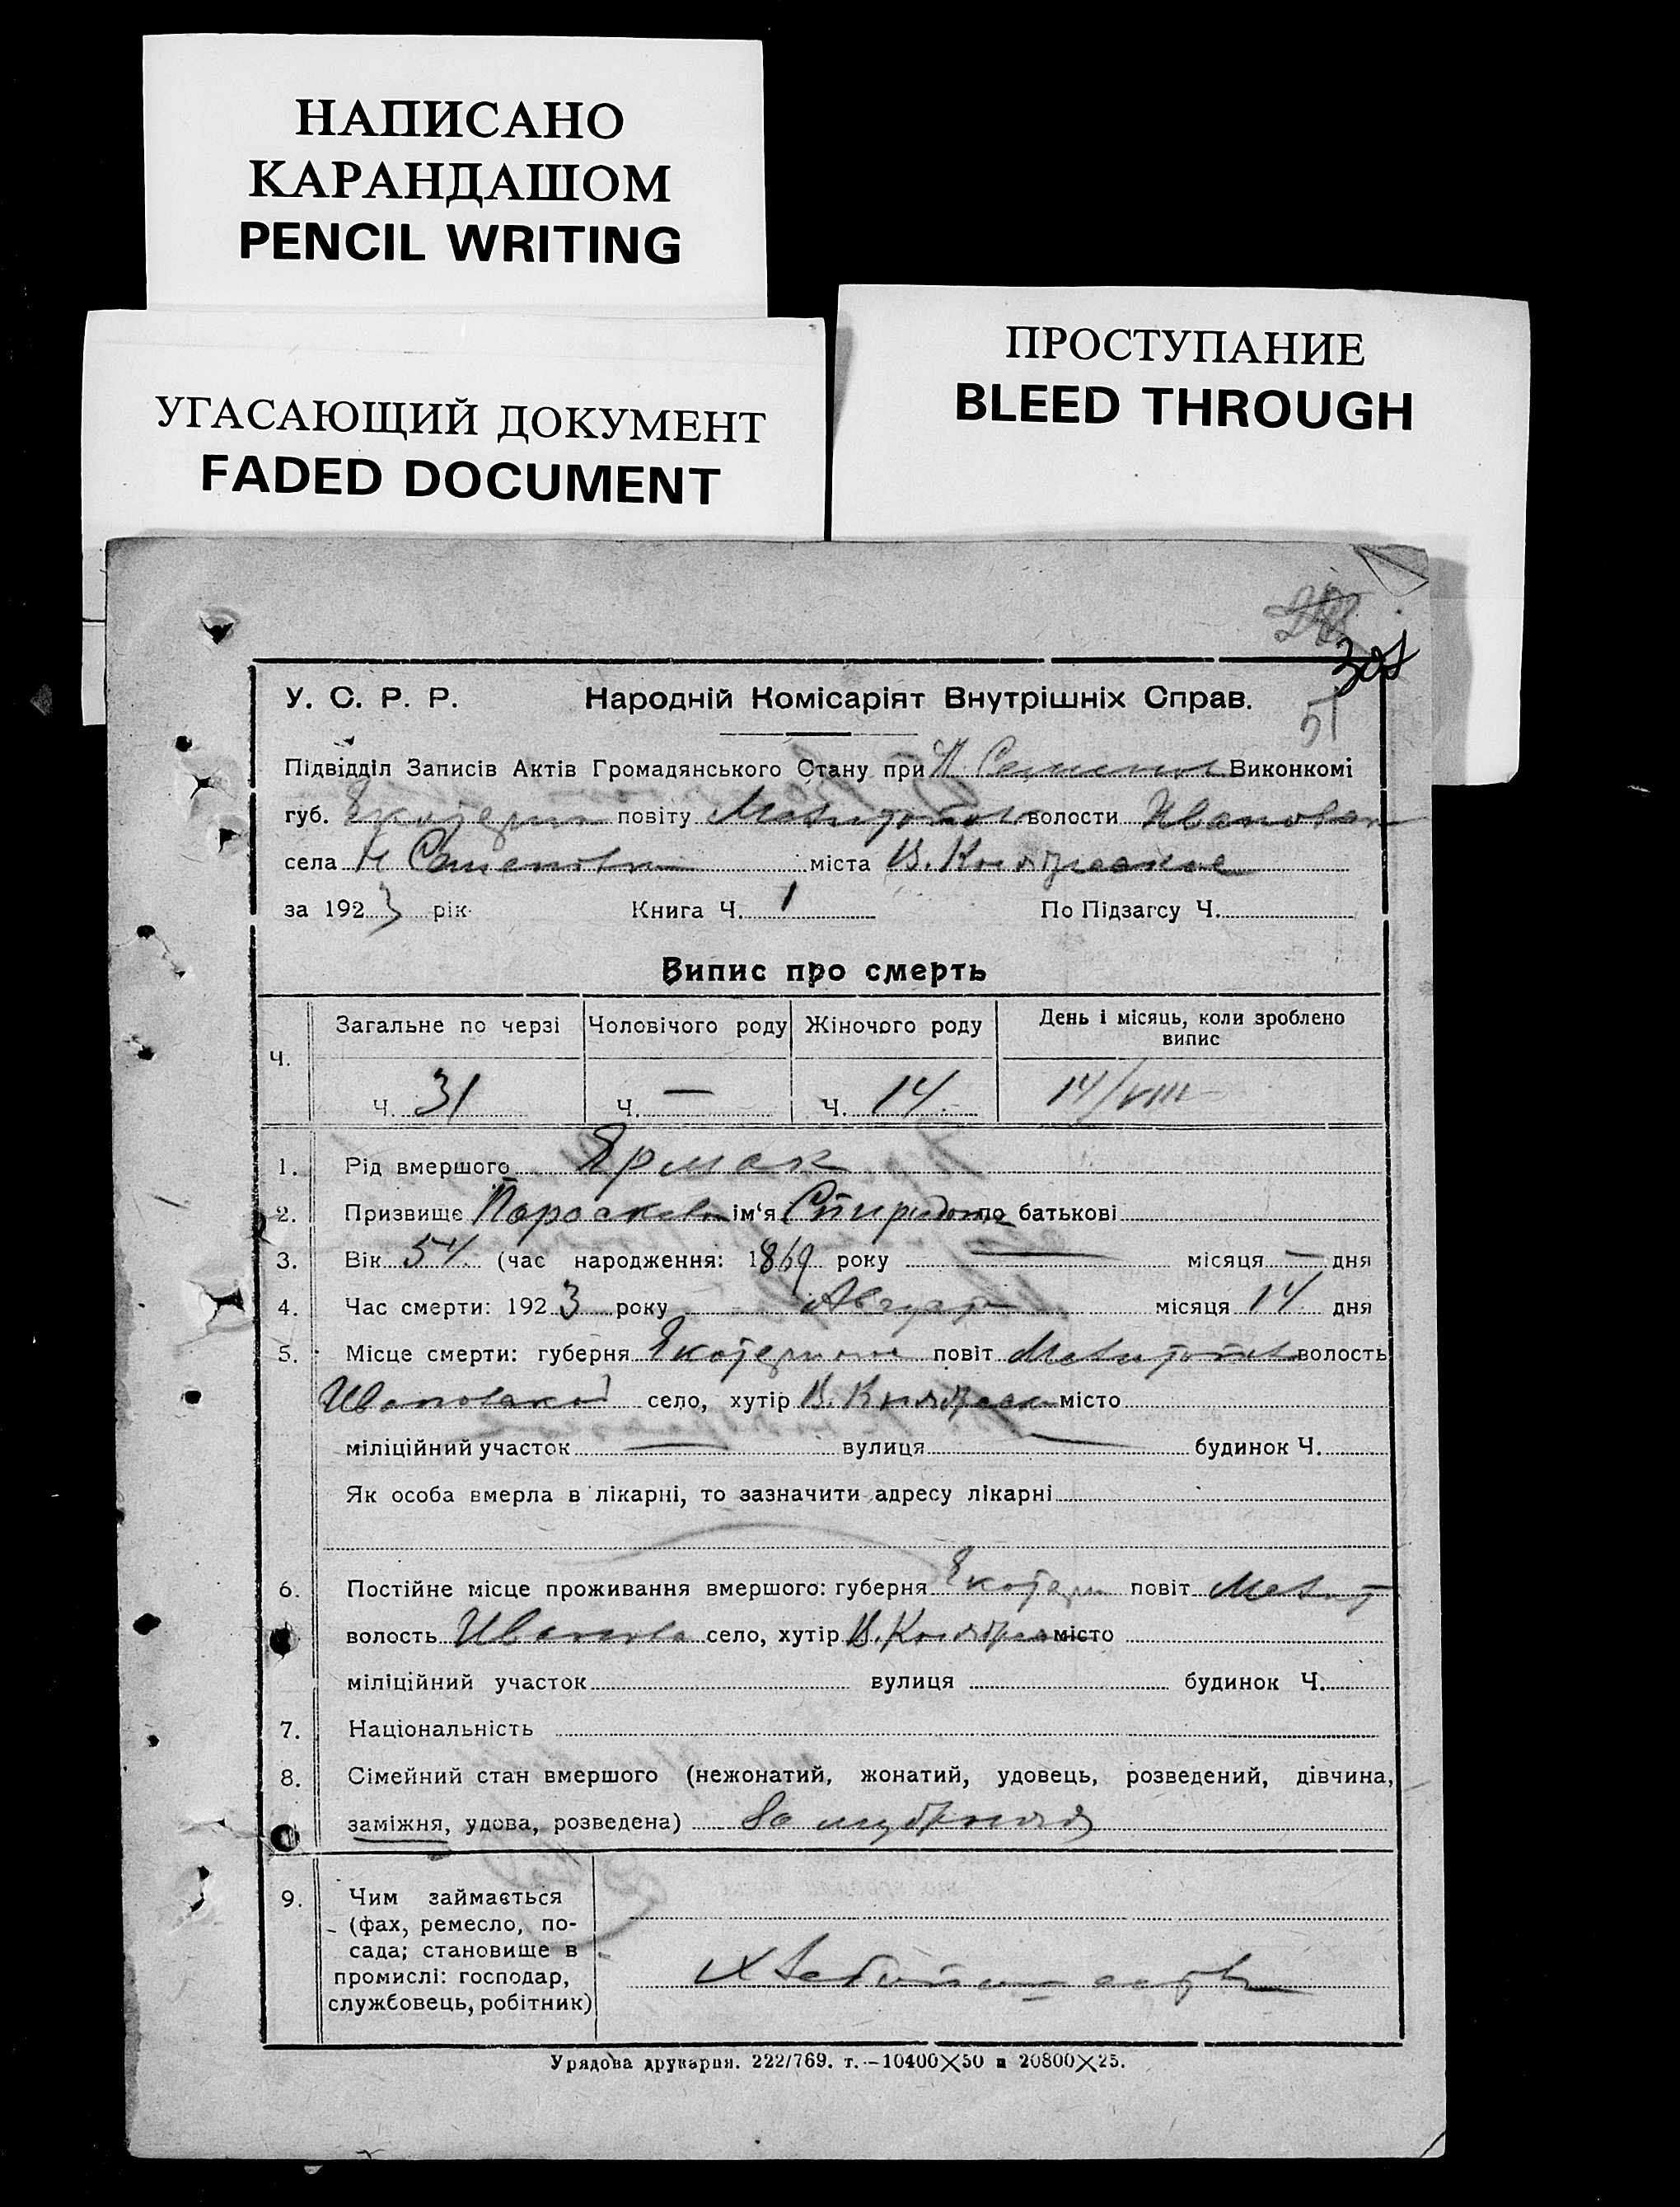 НАПИСАНО
КАРАНДАШОМ
PENCIL WRITING
УГАСАЮЩИЙ ДОКУМЕНТ
FADED DOCUMENT
ПРОСТУПАНИЕ
BLEED THROUGH
У. С. Р. Р. Народній Комісаріят Внутрішніх Справ.
51
Підвідділ Записів Актів Громадянського Стану при Виконкомі
губ. Екатерин повіту волости Ивановск
села міста
за 1923 рік Книга Ч. 1 По Підзагсу Ч.
Випис про смерть
Ч. Загальне по черзі Чоловічого роду Жіночого роду День і місяць, коли зроблено випис
Ч. 31 Ч. — Ч. 14 14/VIII
1. Рід вмершого Ярмак
2. Призвище Пороскева ім'я Спиридон по батькові
3. Вік 54 (час народження: 1869 року — місяця — дня
4. Час смерти: 1923 року Август місяця 14 дня
5. Місце смерти: губерня Екатерин повіт волость
село, хутір місто
міліційний участок — вулиця — будинок Ч.
Як особа вмерла в лікарні, то зазначити адресу лікарні
6. Постійне місце проживання вмершого: губерня Екатери повіт Мелит
волость Иванов село, хутір місто
міліційний участок вулиця будинок Ч.
7. Національність
8. Сімейний стан вмершого (нежонатий, жонатий, удовець, розведений, дівчина,
заміжня, удова, розведена) За мужняя
9. Чим займається
(фах, ремесло, по-
сада; становище в
промислі: господар,
службовець, робітник)
Урядова друкарня. 222/769. т.—10400×50 и 20800×25.